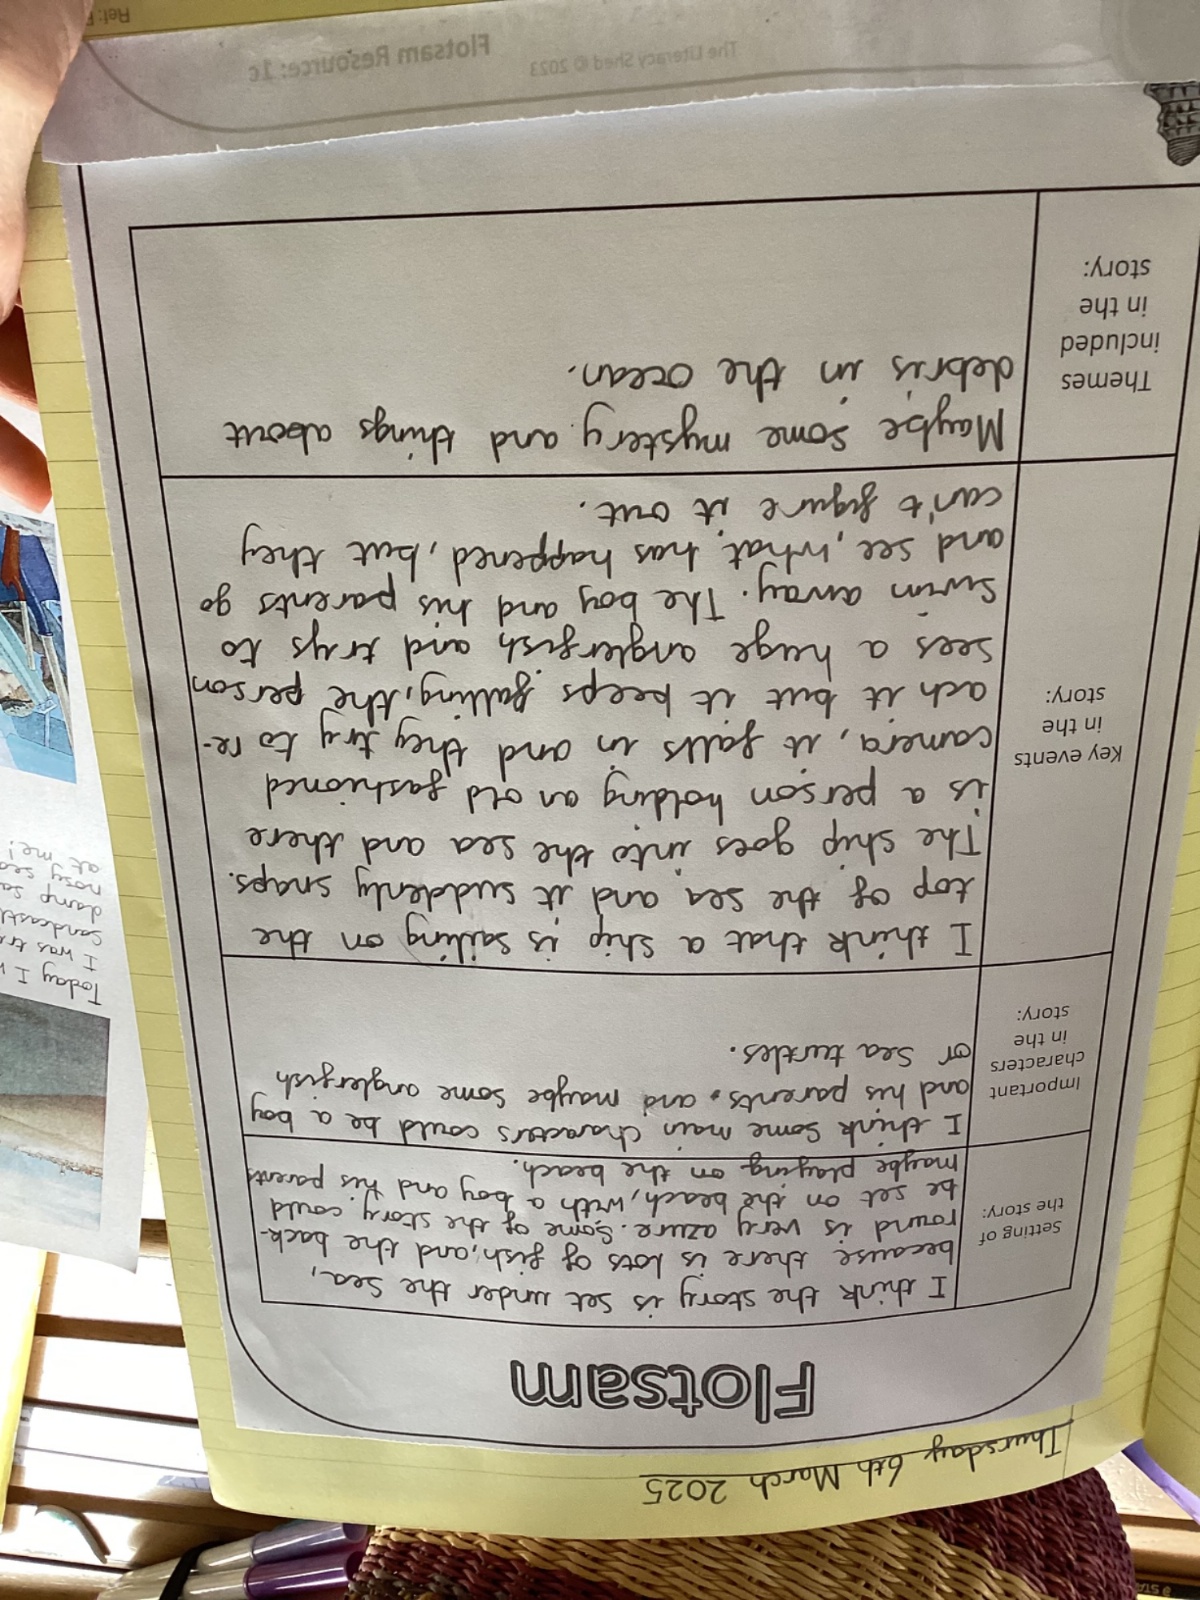 Thursday 6th March 2025
Flotsam
Setting of
the story:
I think the story is set under the sea,
because there is lots of fish, and the back-
round is very azure. Some of the story could
be set on the beach, with a boy and his parents
maybe playing on the beach.
Important
characters
in the
story:
I think some main characters could be a boy
and his parents. and maybe some anglerfish
or sea turtles.
Key events
in the
story:
I think that a ship is sailing on the
top of the sea and it suddenly snaps.
The ship goes into the sea and there
is a person holding an old fashioned
camera, it falls in and they try to re-
ach it but it keeps falling, the person
sees a huge anglerfish and trys to
swim away. The boy and his parents go
and see, what has happened, but they
can't figure it out.
Themes
included
in the
story:
Maybe some mystery and things about
debris in the ocean.
The Literacy Shed © 2023
Flotsam Resource: 1c
Ref:
Today I
I was
damp
nosy
at me!